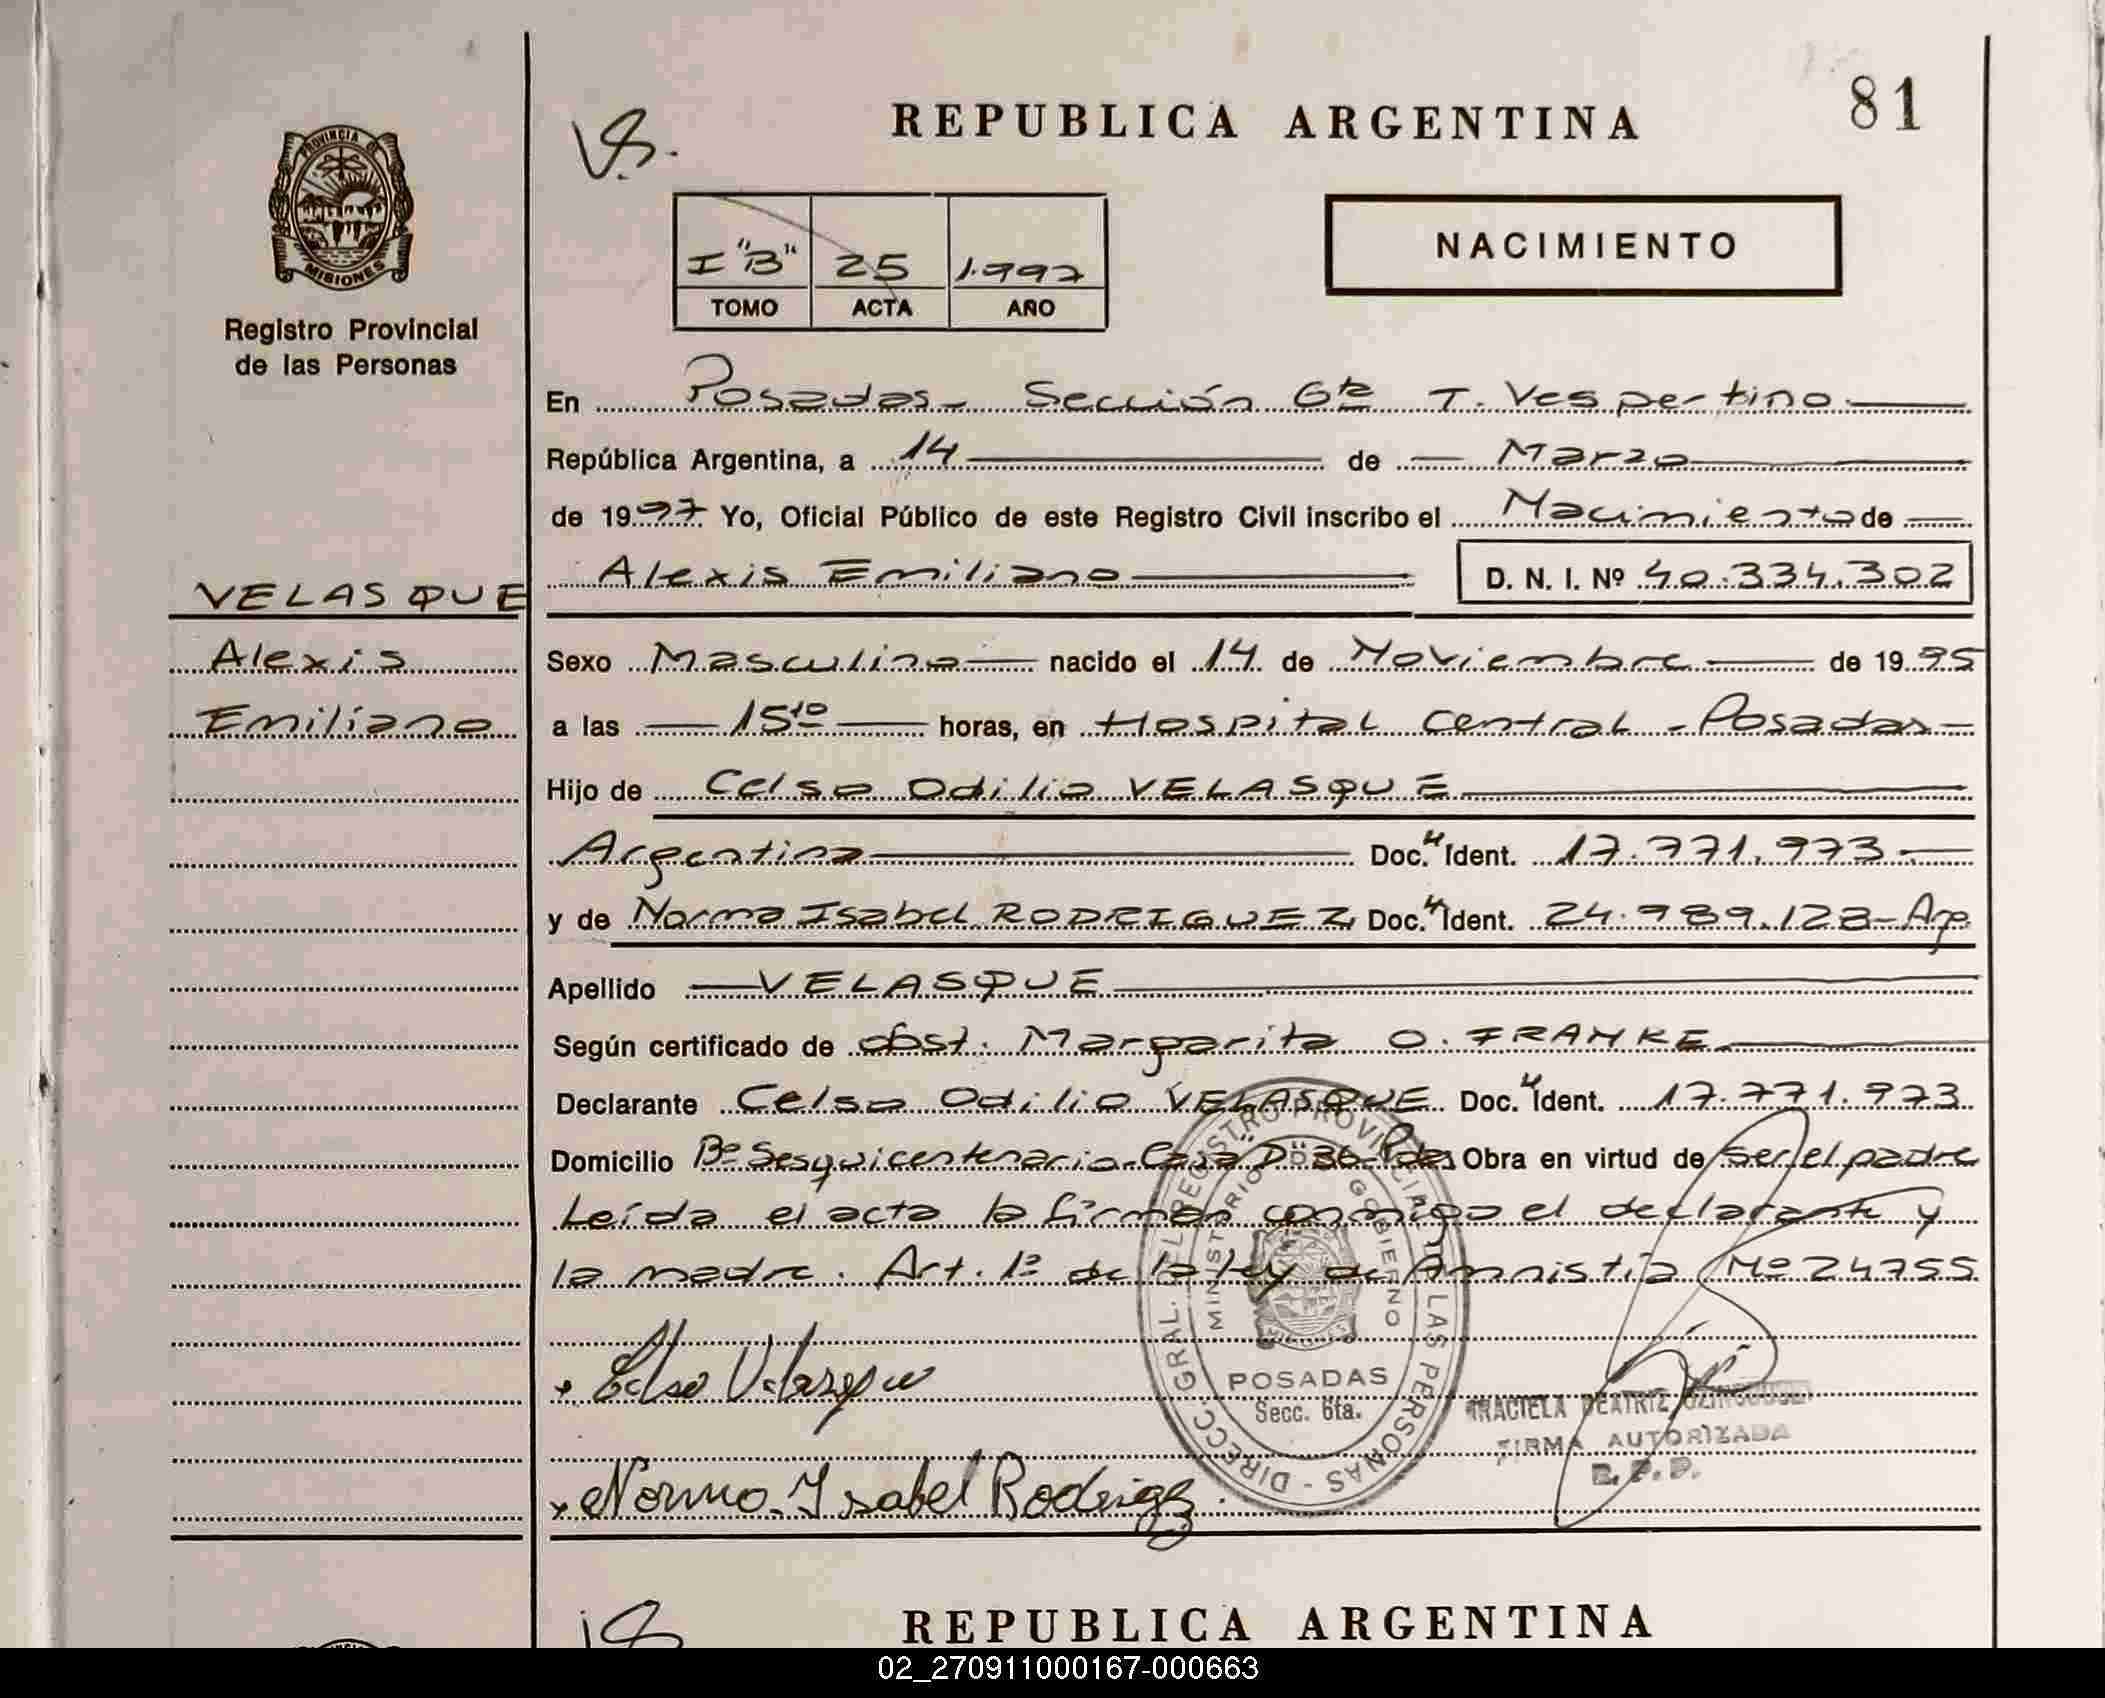 REPUBLICA ARGENTINA
81
PROVINCIA DE
MISIONES
Registro Provincial
de las Personas
I "B" 25 1.997
TOMO ACTA AÑO
NACIMIENTO
En Posadas - Sección 6ta T. Vespertino
República Argentina, a 14 de Marzo
de 1997 Yo, Oficial Público de este Registro Civil inscribo el Nacimiento de
VELASQUE
Alexis Emiliano D. N. I. Nº 40.334.302
Alexis
Emiliano
Sexo Masculino nacido el 14 de Noviembre de 1995
a las 15 10 horas, en Hospital Central - Posadas -
Hijo de Celso Odilio VELASQUE
Argentina Doc. Ident. 17.771.973
y de Norma Isabel RODRIGUEZ Doc. Ident. 24.989.128 - Arg.
Apellido VELASQUE
Según certificado de obst. Margarita O. FRANKE
Declarante Celso Odilio VELASQUE Doc. Ident. 17.771.973
Domicilio Bº Sesquicentenario - Casa "D" 36 - Pdas Obra en virtud de ser el padre
Leída el acta la firman conmigo el declarante y
la madre. Art. 1º de la ley de Amnistía Nº 24755
Celso Velasque
Norma Isabel Rodriguez
DIRECC. GRAL. DEL REGISTRO PROVINCIAL DE LAS PERSONAS
MINISTERIO DE GOBIERNO
POSADAS
Secc. 6ta.
GRACIELA BEATRIZ
FIRMA AUTORIZADA
R.P.P.
REPUBLICA ARGENTINA
02_270911000167-000663